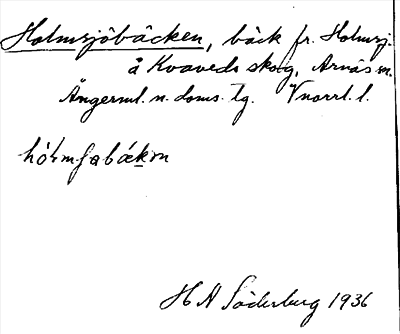 Holmsjöbäcken, bäck fr. Holmsj.
å Kvaveds skog, Arnäs sn.
Ångerml. n. doms. tg. Vnorrl. l.
hólmʃabækən
H A Söderberg 1936